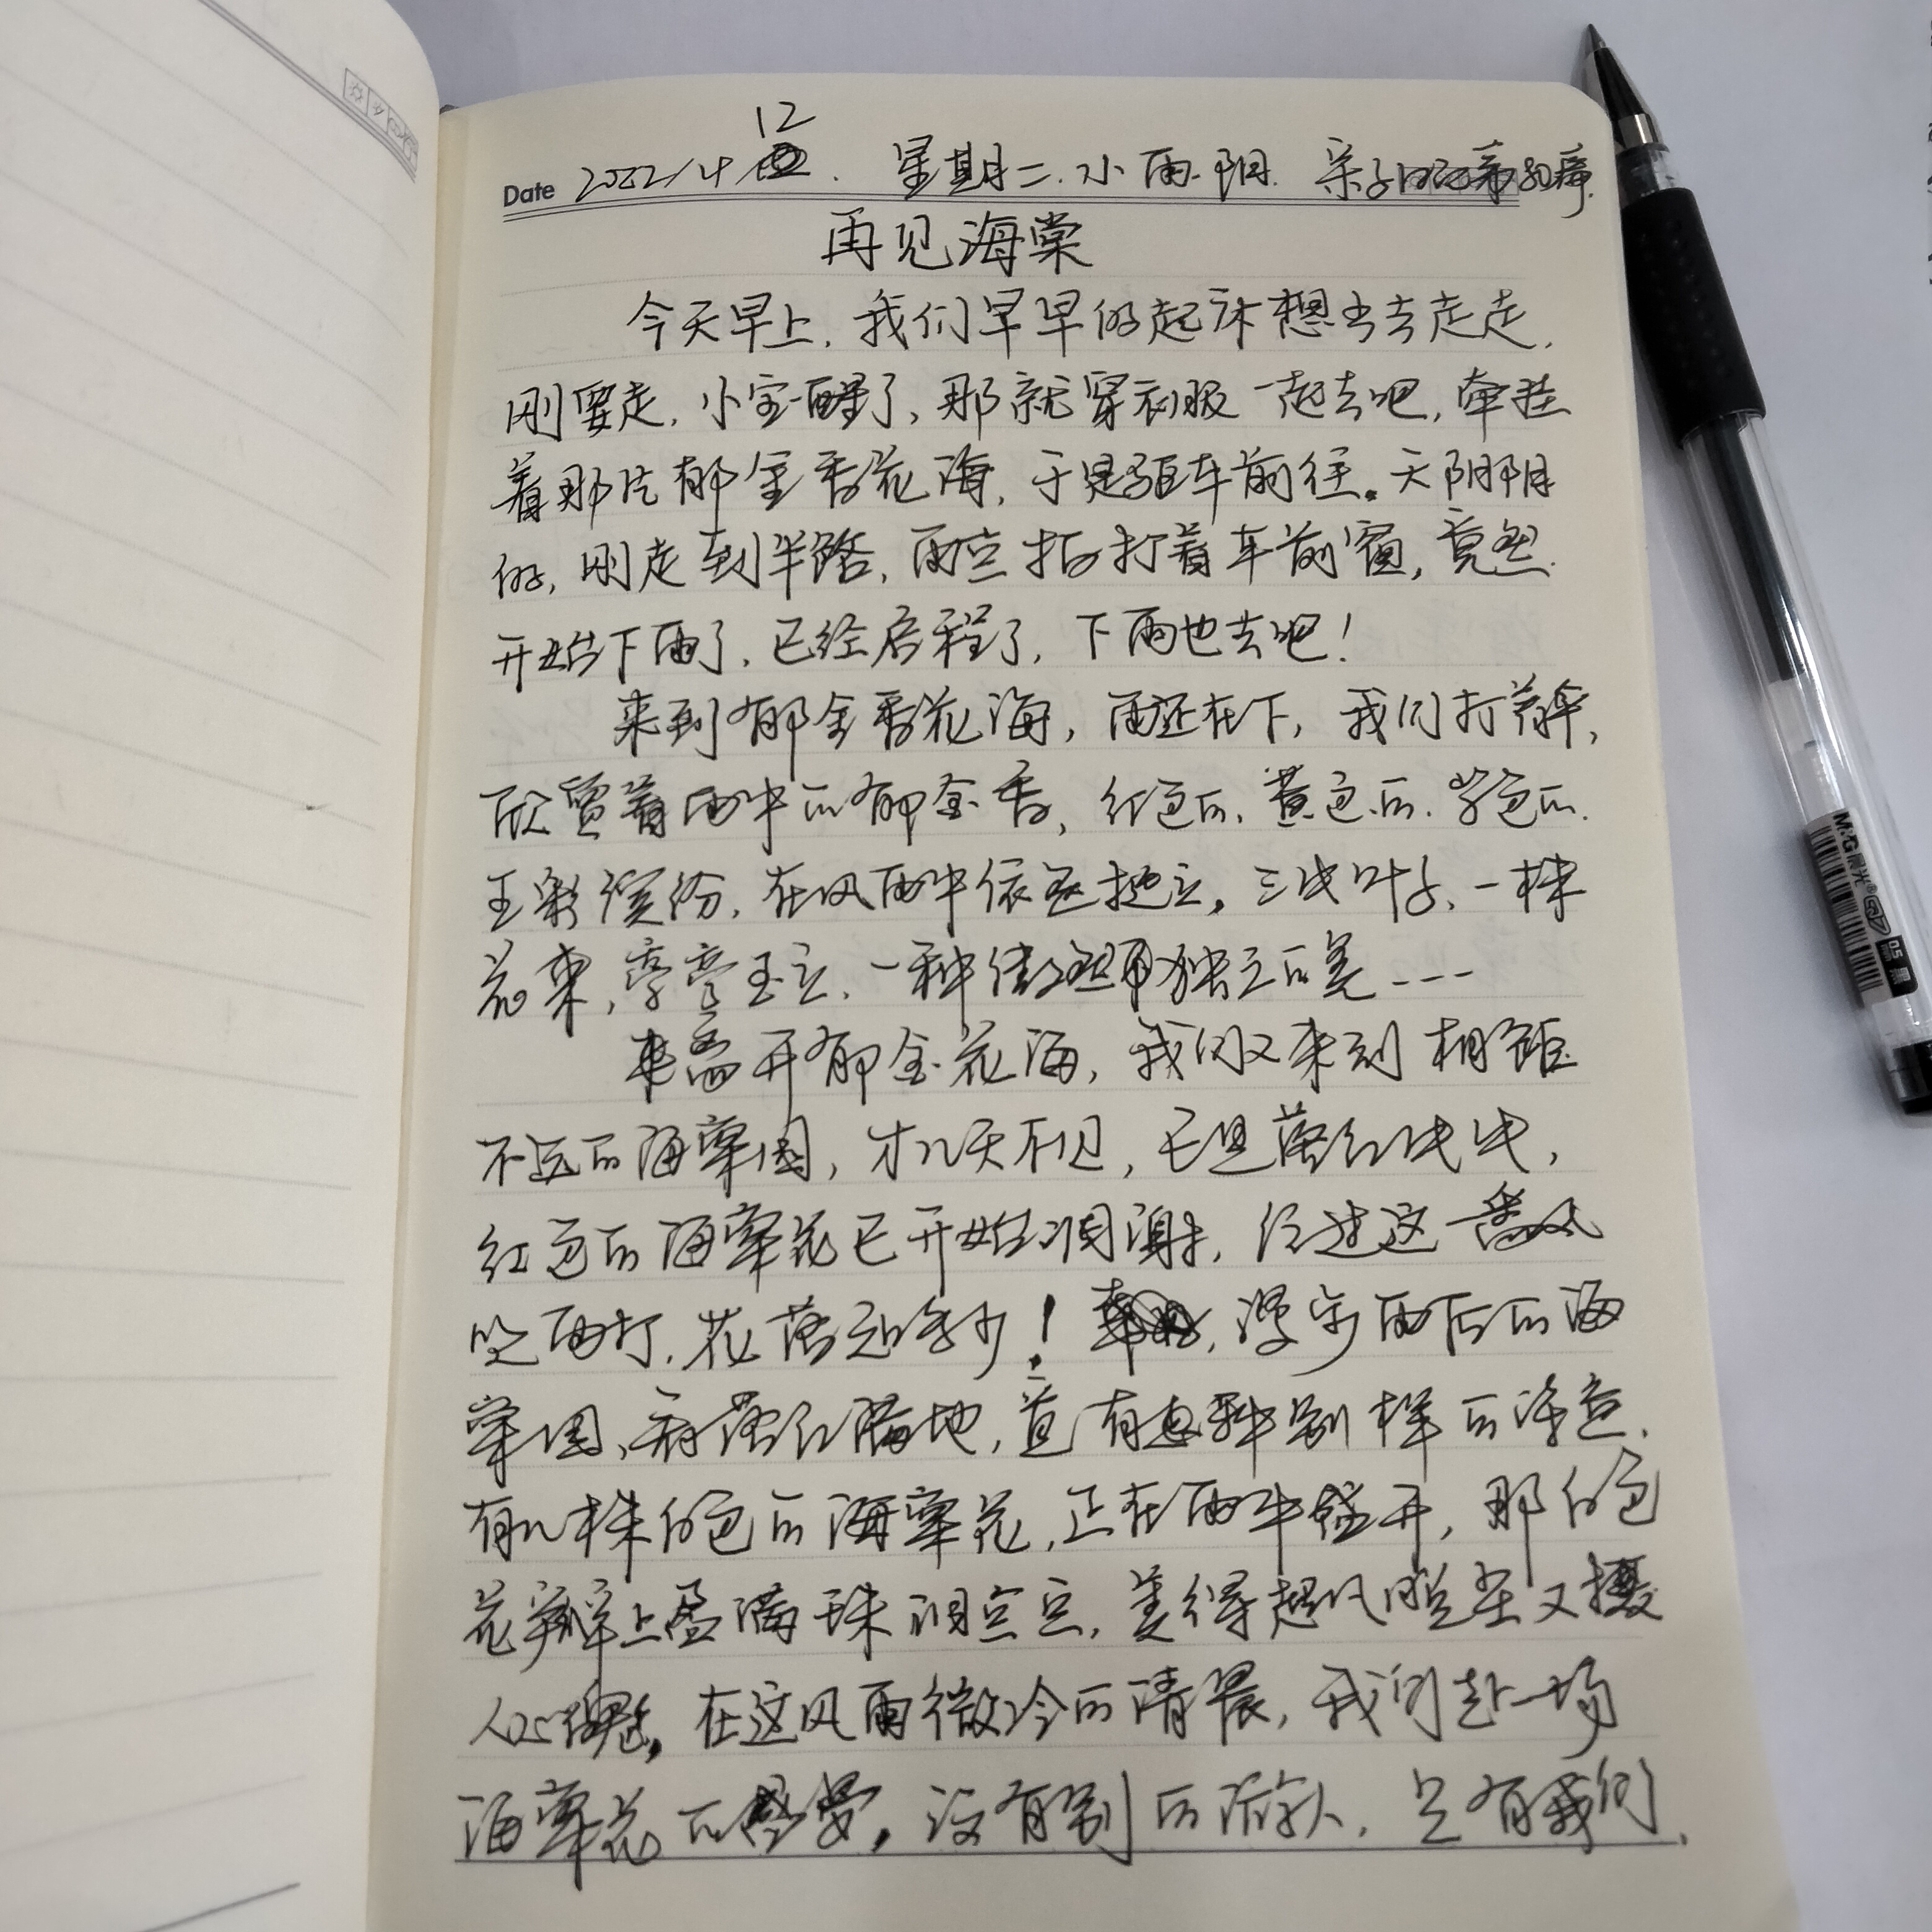 12
Date 2022/4 . 星期二. 小雨.阴. 亲子日记第
再见海棠
今天早上, 我们早早的起床想出去走走,
刚要走, 小宝醒了, 那就穿衣服一起去吧, 牵挂
着那片郁金香花海, 于是驱车前往。天阴阴
的, 刚走到半路, 雨点拍打着车前窗, 竟然
开始下雨了, 已经启程了, 下雨也去吧!
来到郁金香花海, 雨还在下, 我们打着伞,
欣赏着雨中的郁金香, 红色的. 黄色的. 紫色的.
五彩缤纷, 在风雨中依然挺立。三片叶子、一株
花束, 亭亭玉立、一种傲然独立的美---
离开郁金花海, 我们又来到相距
不远的海棠园, 才几天不见, 已是落红片片,
红色的海棠花已开始凋谢, 经过这一番风
吹雨打, 花落知多少! 漫步雨后的海
棠园, 看落红满地, 有种别样的
有几株白色的海棠花, 正在雨中盛开, 那白色
花瓣上盈满珠泪点点, 美得超凡脱尘又摄
人心魄, 在这风雨微冷的清晨, 我们赴一场
海棠花的盛宴, 没有别的游人, 只有我们,
M&G晨光
0.5